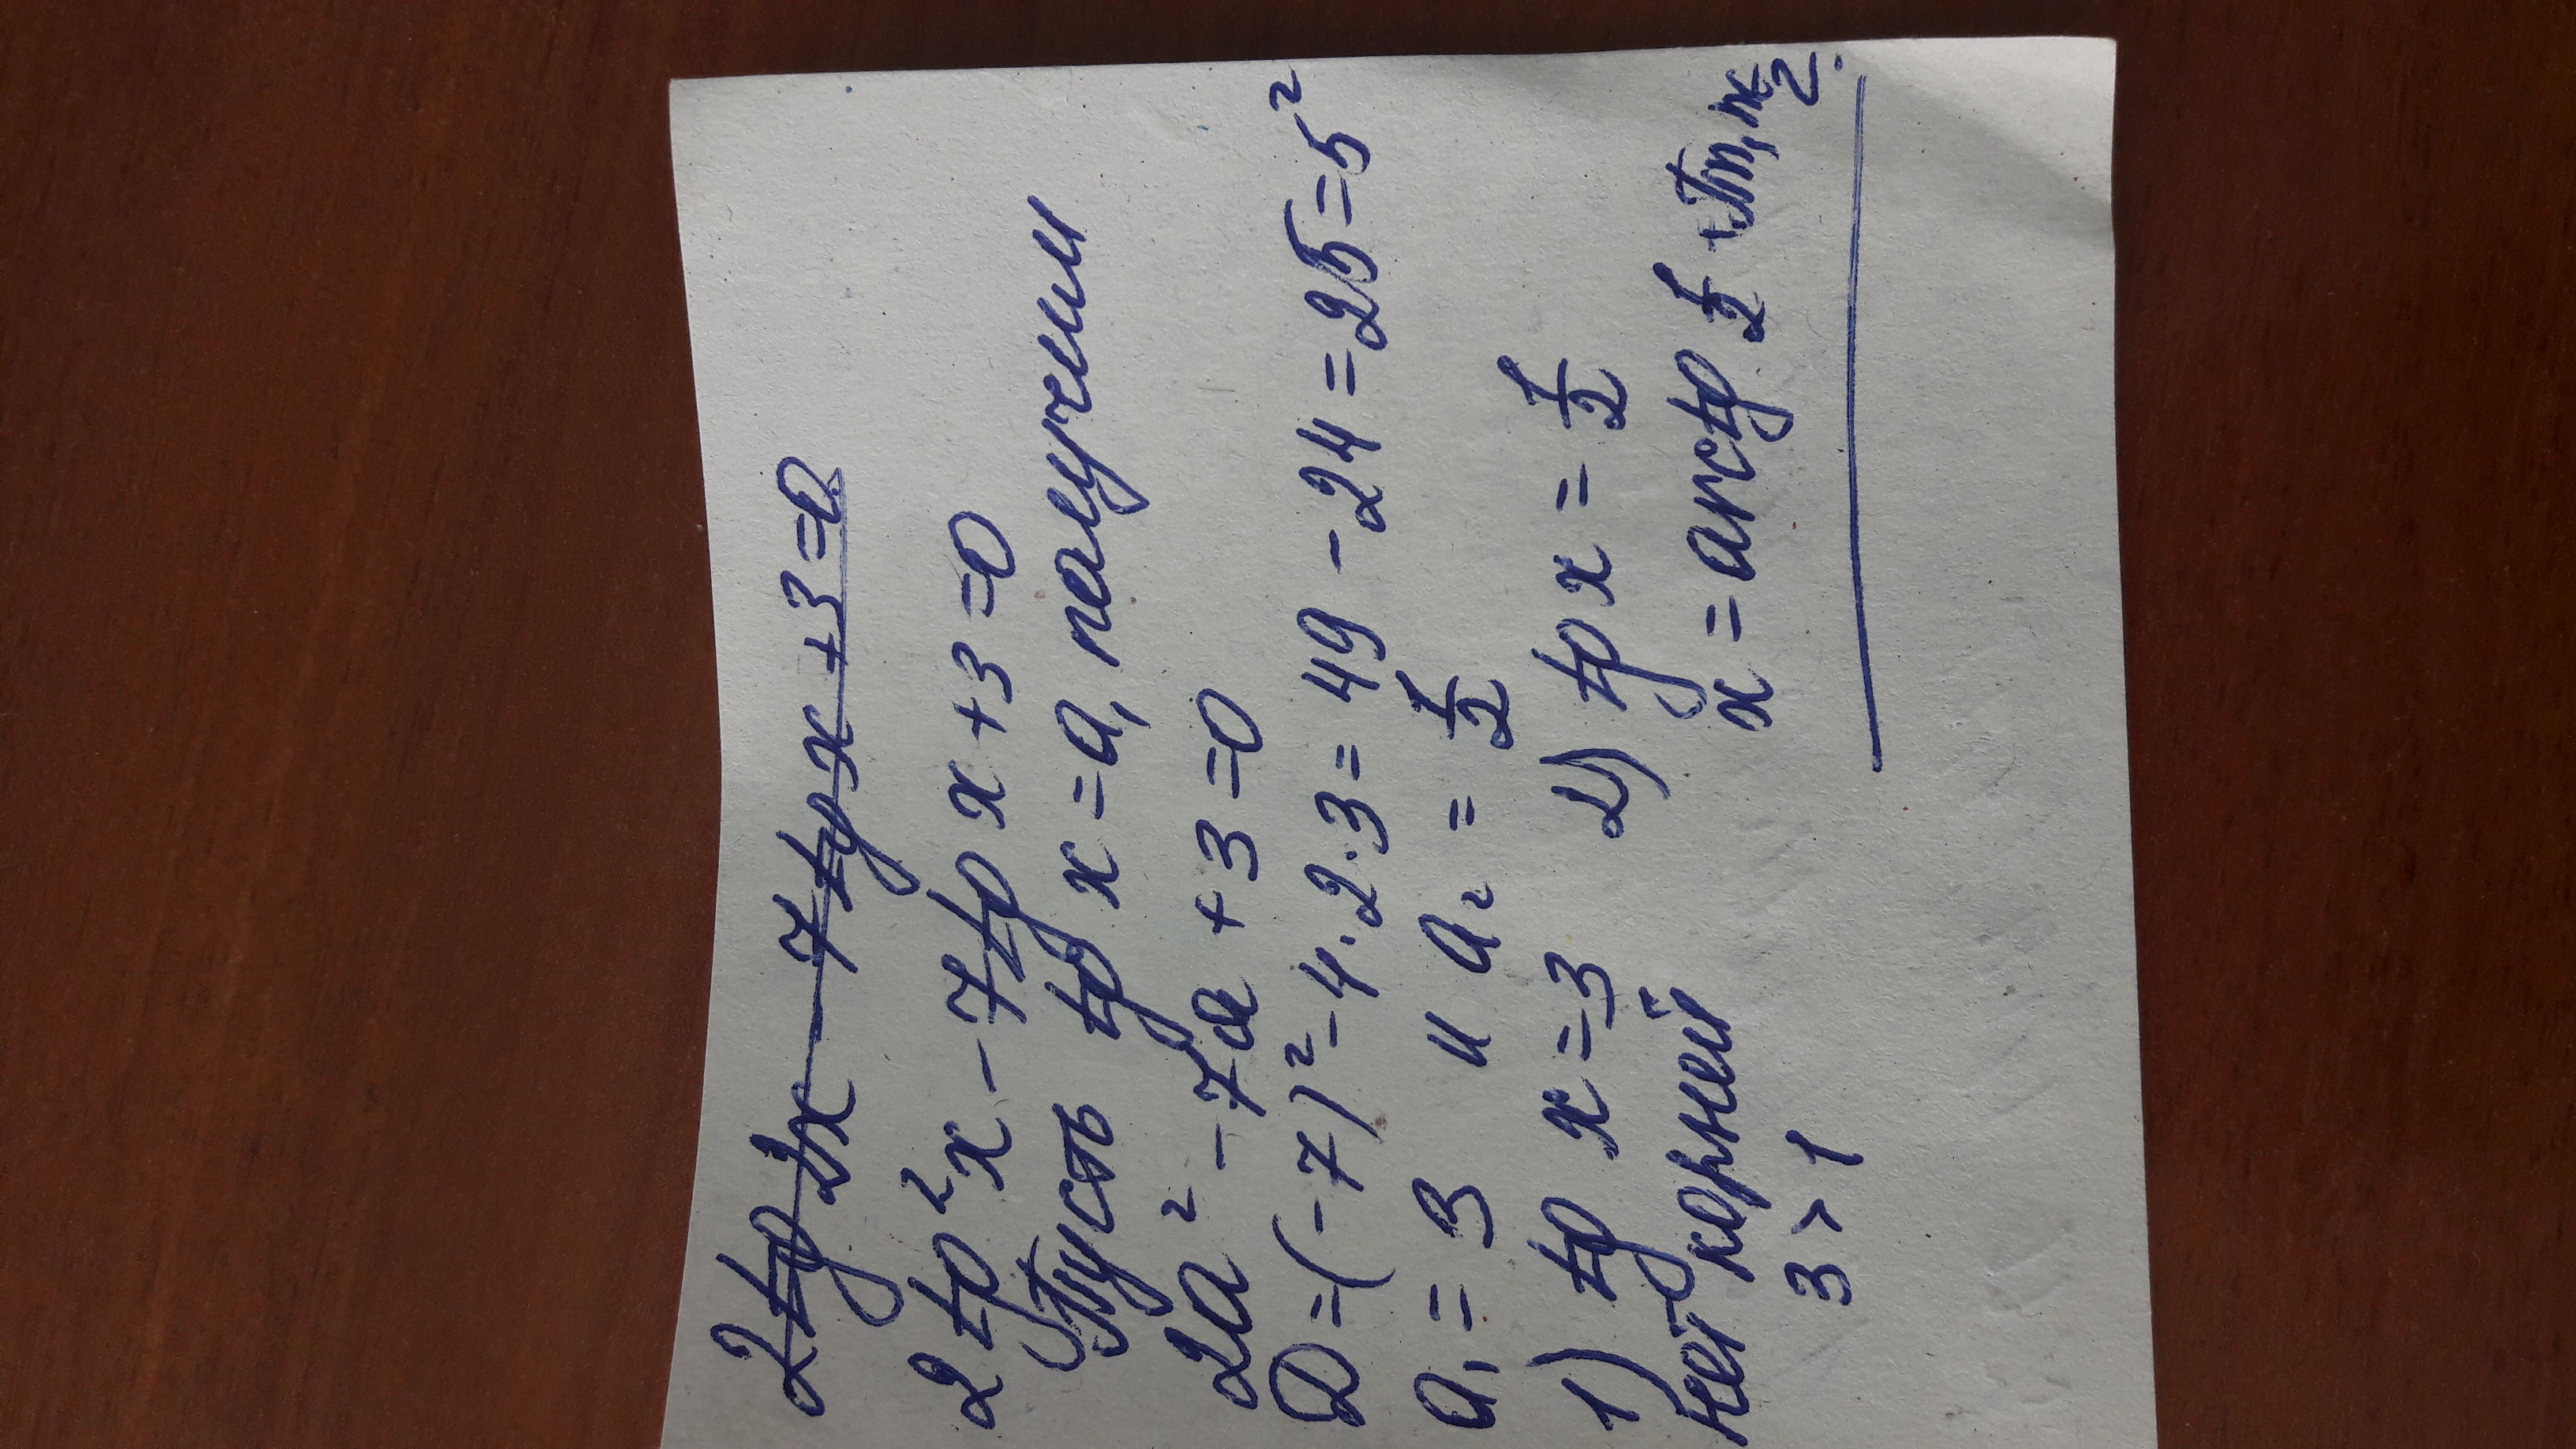 2tg2x - 7tgx + 3 = 0
2 tg² x - 7 tg x + 3 = 0
Пусть tg x = a, получим
2a² - 7a + 3 = 0
D = (-7)² - 4 · 2 · 3 = 49 - 24 = 25 = 5²
a₁ = 3 и a₂ = 1/2
1) tg x = 3 2) tg x = 1/2
нет корней x = arctg 1/2 + πn, n∈Z.
3 > 1